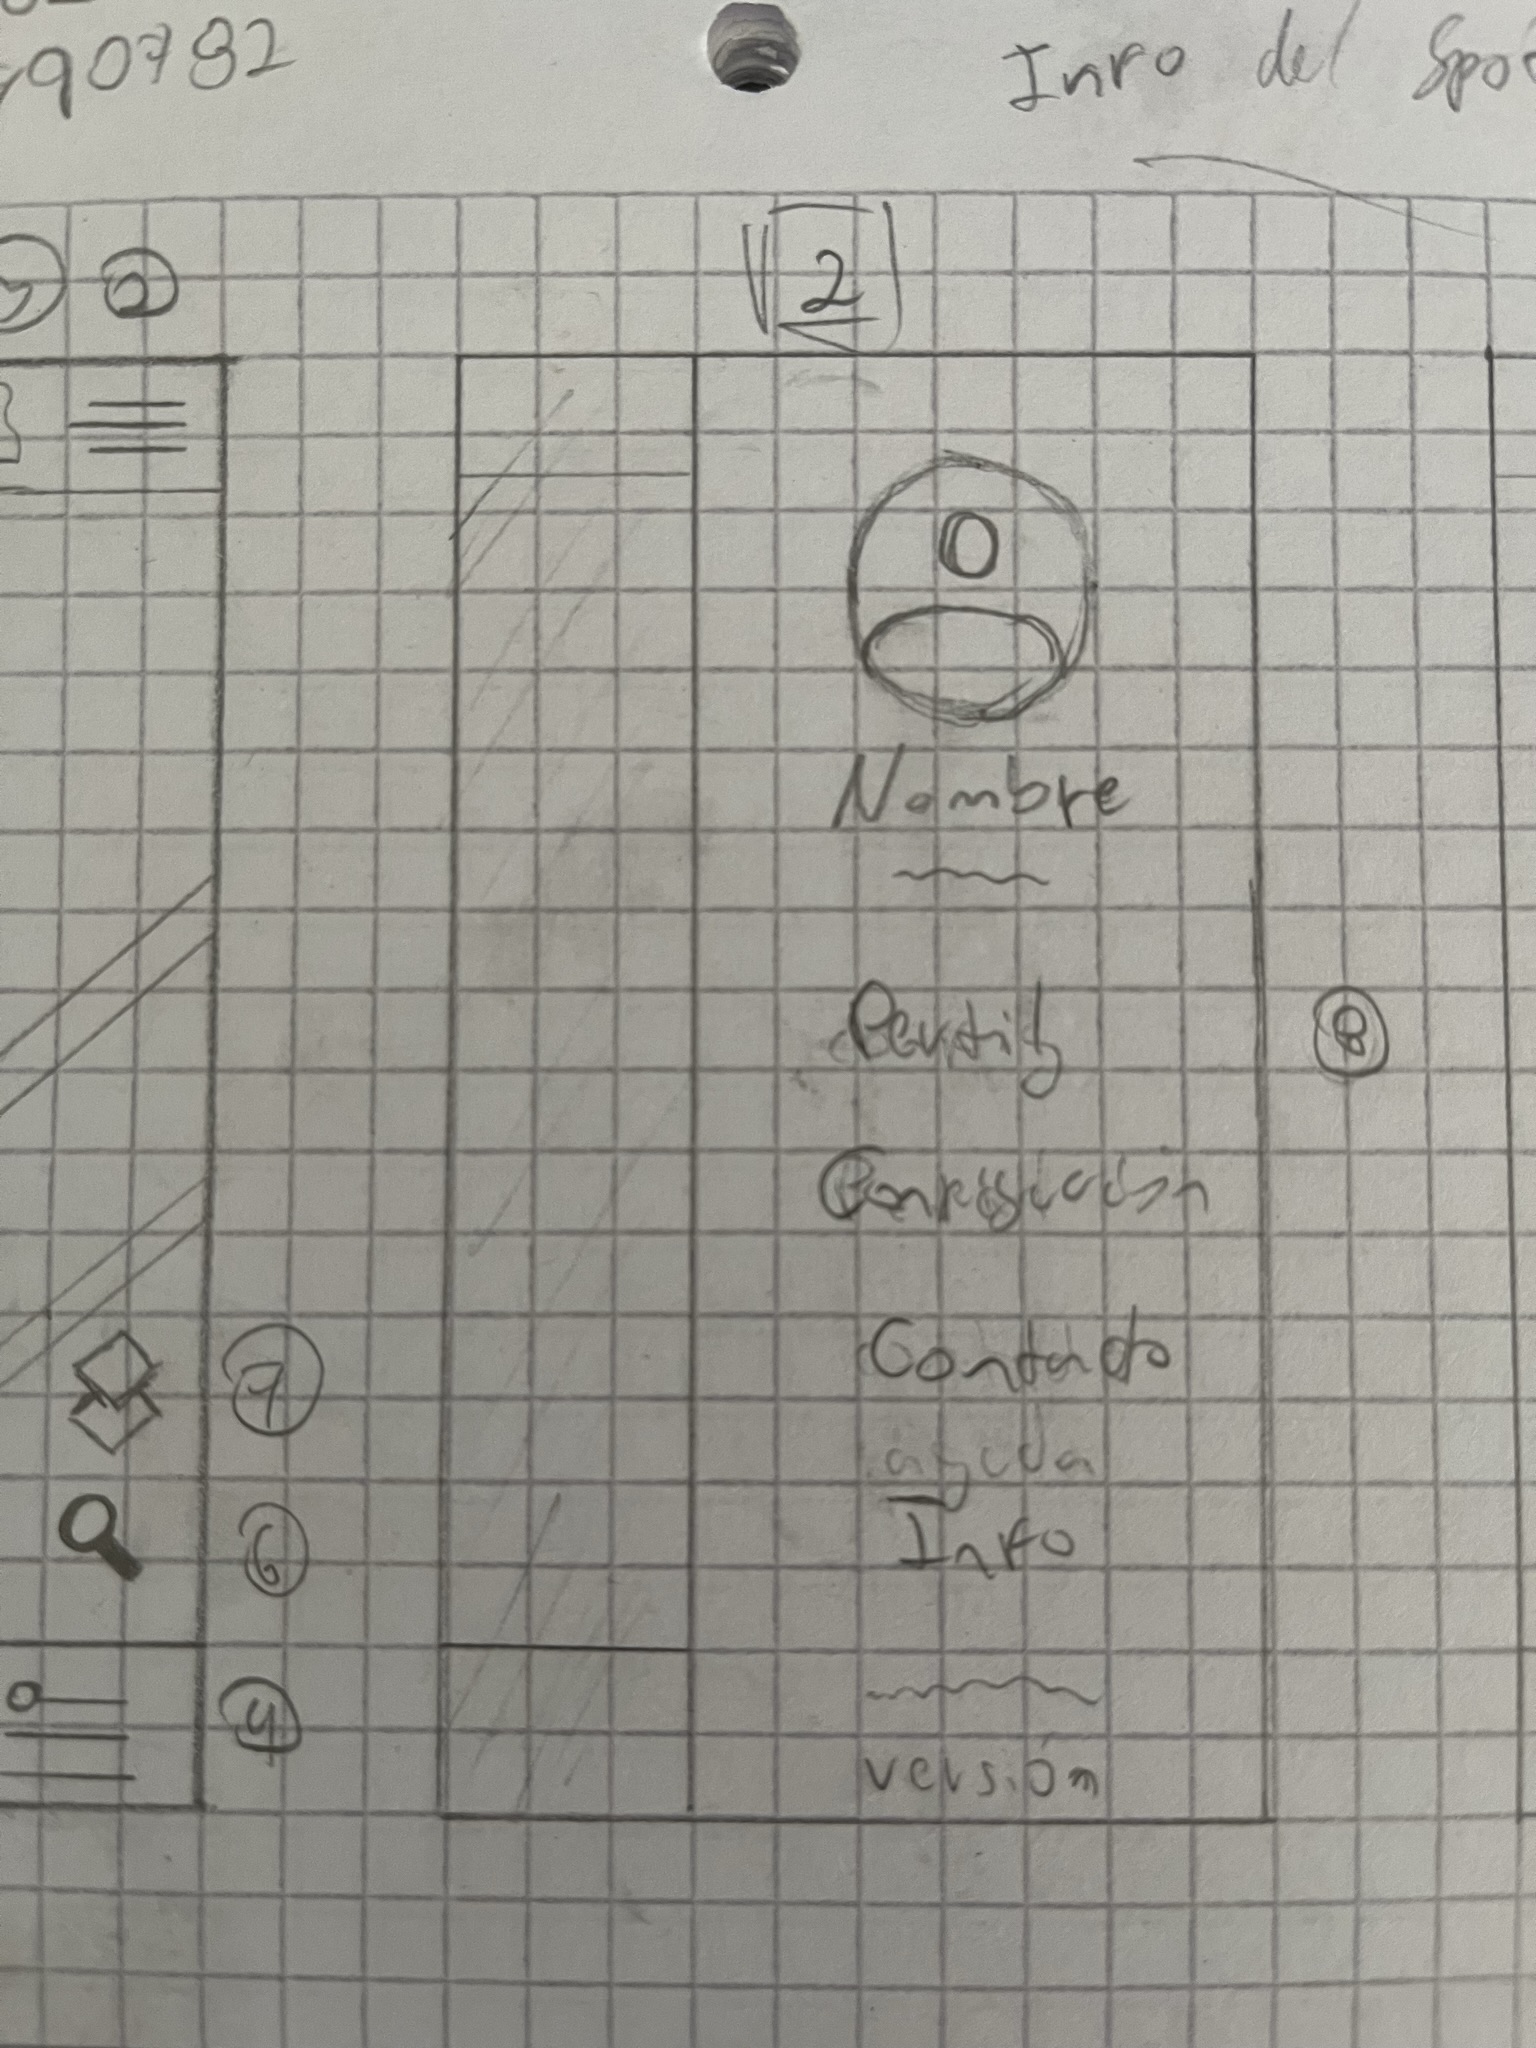 90782
Info del Spo
2
2
Nombre
Perfil
8
Configuración
Contacto
7
ayuda
Info
6
4
versión